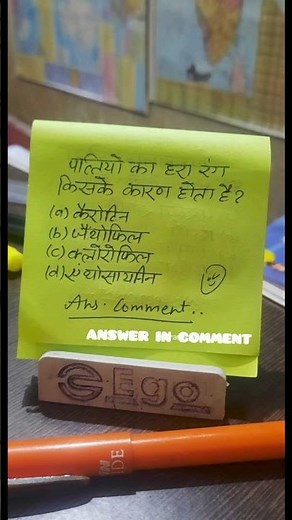 पत्तियो का हरा रंग
किसके कारण होता है?
(a) कैरोटिन
(b) जैथोफिल
(c) क्लोरोफिल
(d) एंथोसायनिन
Ans. Comment..
ANSWER IN COMMENT
Ego